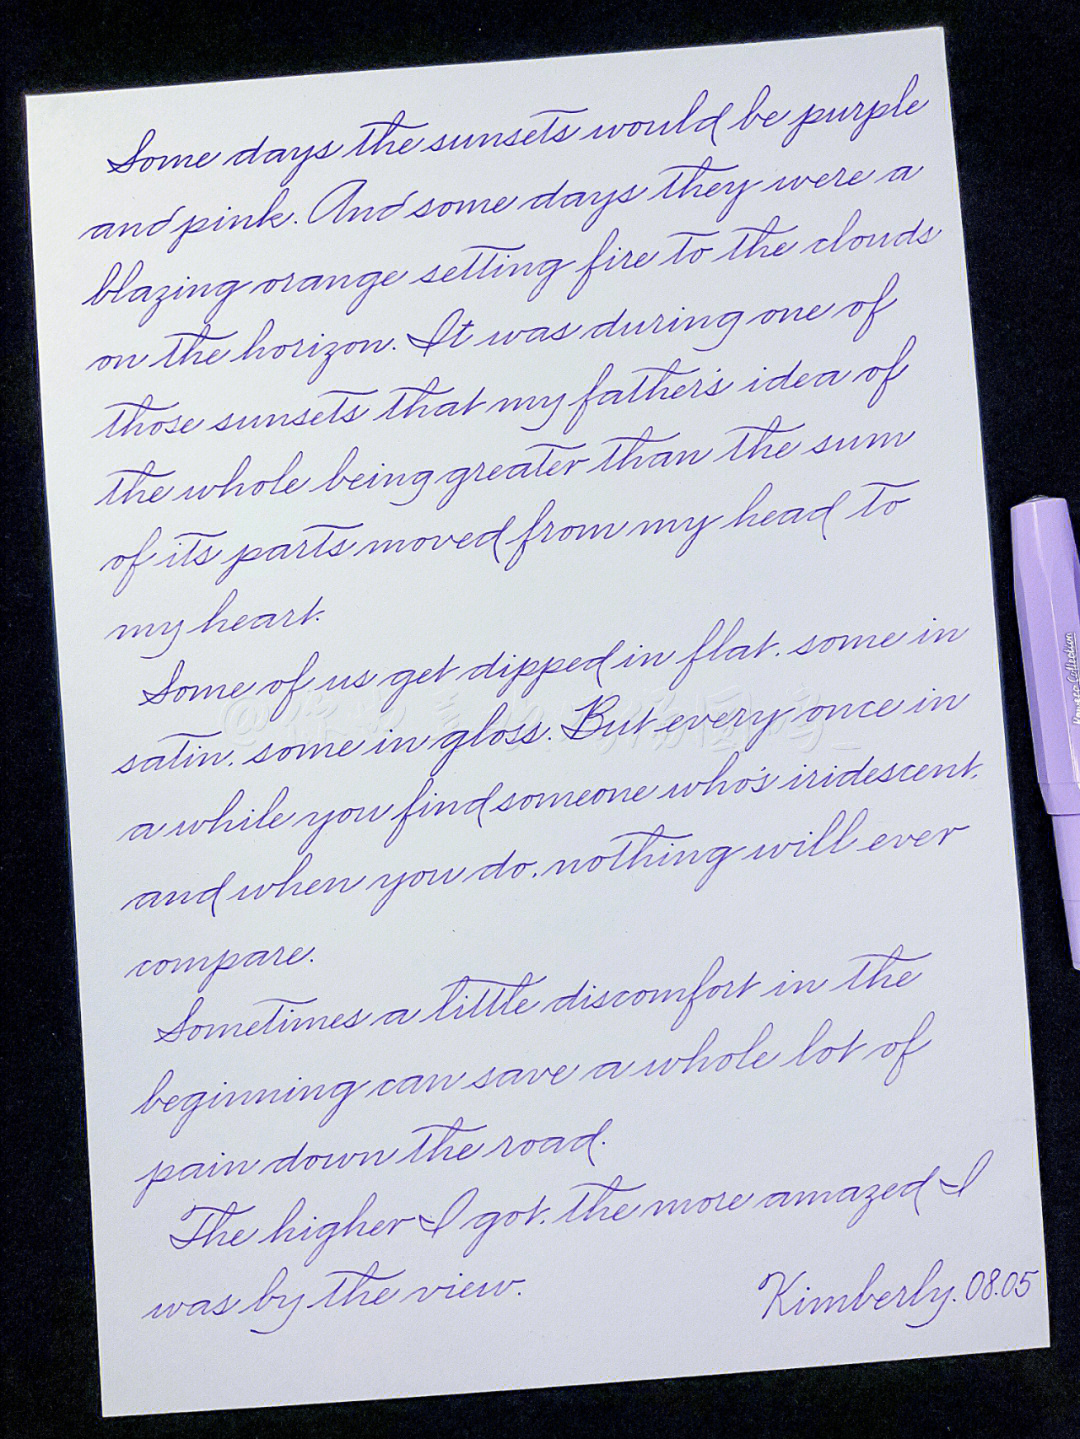 Some days the sunsets would be purple
and pink. And some days they were a
blazing orange setting fire to the clouds
on the horizon. It was during one of
those sunsets that my father's idea of
the whole being greater than the sum
of its parts moved from my head to
my heart.
Some of us get dipped in flat. some in
satin. some in gloss. But every once in
a while you find someone who's iridescent.
and when you do. nothing will ever
compare.
Sometimes a little discomfort in the
beginning can save a whole lot of
pain down the road.
The higher I got. the more amazed I
was by the view.
Kimberly. 08.05
Collection